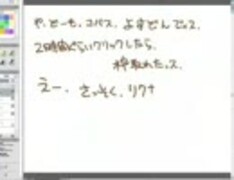 や、どーも。コバス。よすどんでっス。
2時間ぐらいクリックしたら、
枠取れたっス。
えー、さっそく、リクナ